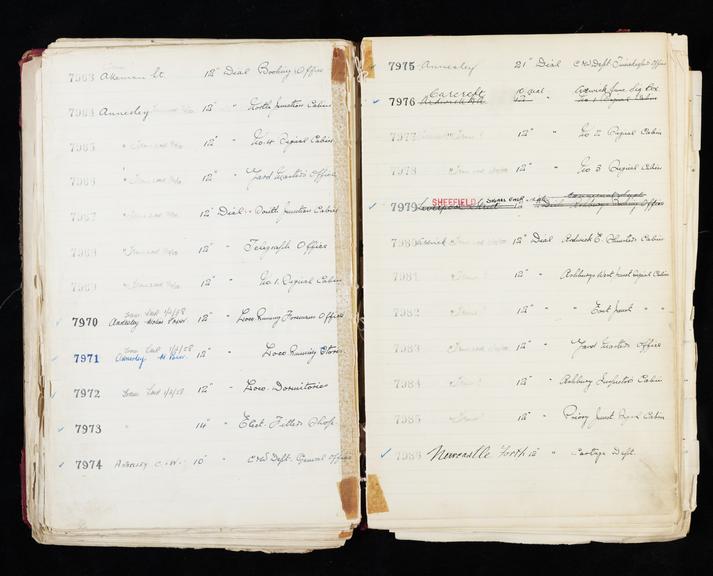 7963 Akeman St. 12" Dial Booking Office
7964 Annesley 12" " North Junction Cabin
" 12" " No. 4 Signal Cabin
7966 " 12" " Yard Masters Office
7967 " 12" Dial South Junction Cabin
7968 " 12" " Telegraph Office
7969 " 12" " No 1. Signal Cabin
7970 Annesley 12" " Loco Running Foremans Office
7971 Annesley 12" " Loco Running Stores
7972 12" " Loco. Dormitories
7973 " 14" " Elect. Fitters Shop
7974 Annesley C. & W. 10" " C&W Dept. General Office
7975 Annesley 21" Dial C&W Dept. Office
7976 Carcroft 10" dial Adwick Lane Sig Box
12" No 1 Signal Cabin
7977 12" " No 2 Signal Cabin
7978 12" " No 3 Signal Cabin
7979 SHEFFIELD
Liverpool Street 12" Dial Booking Office
12" Dial Ardwick E. Cabin
7981 12" " Ashburys West Junct Signal Cabin
7982 12" " " East Junct " "
7983 12" " Yard Masters Office
7984 12" " Ashbury Inspectors Cabin
7985 12" " Priory Junct Signal Cabin
7986 Newcastle Forth 12" " Cartage Dept.